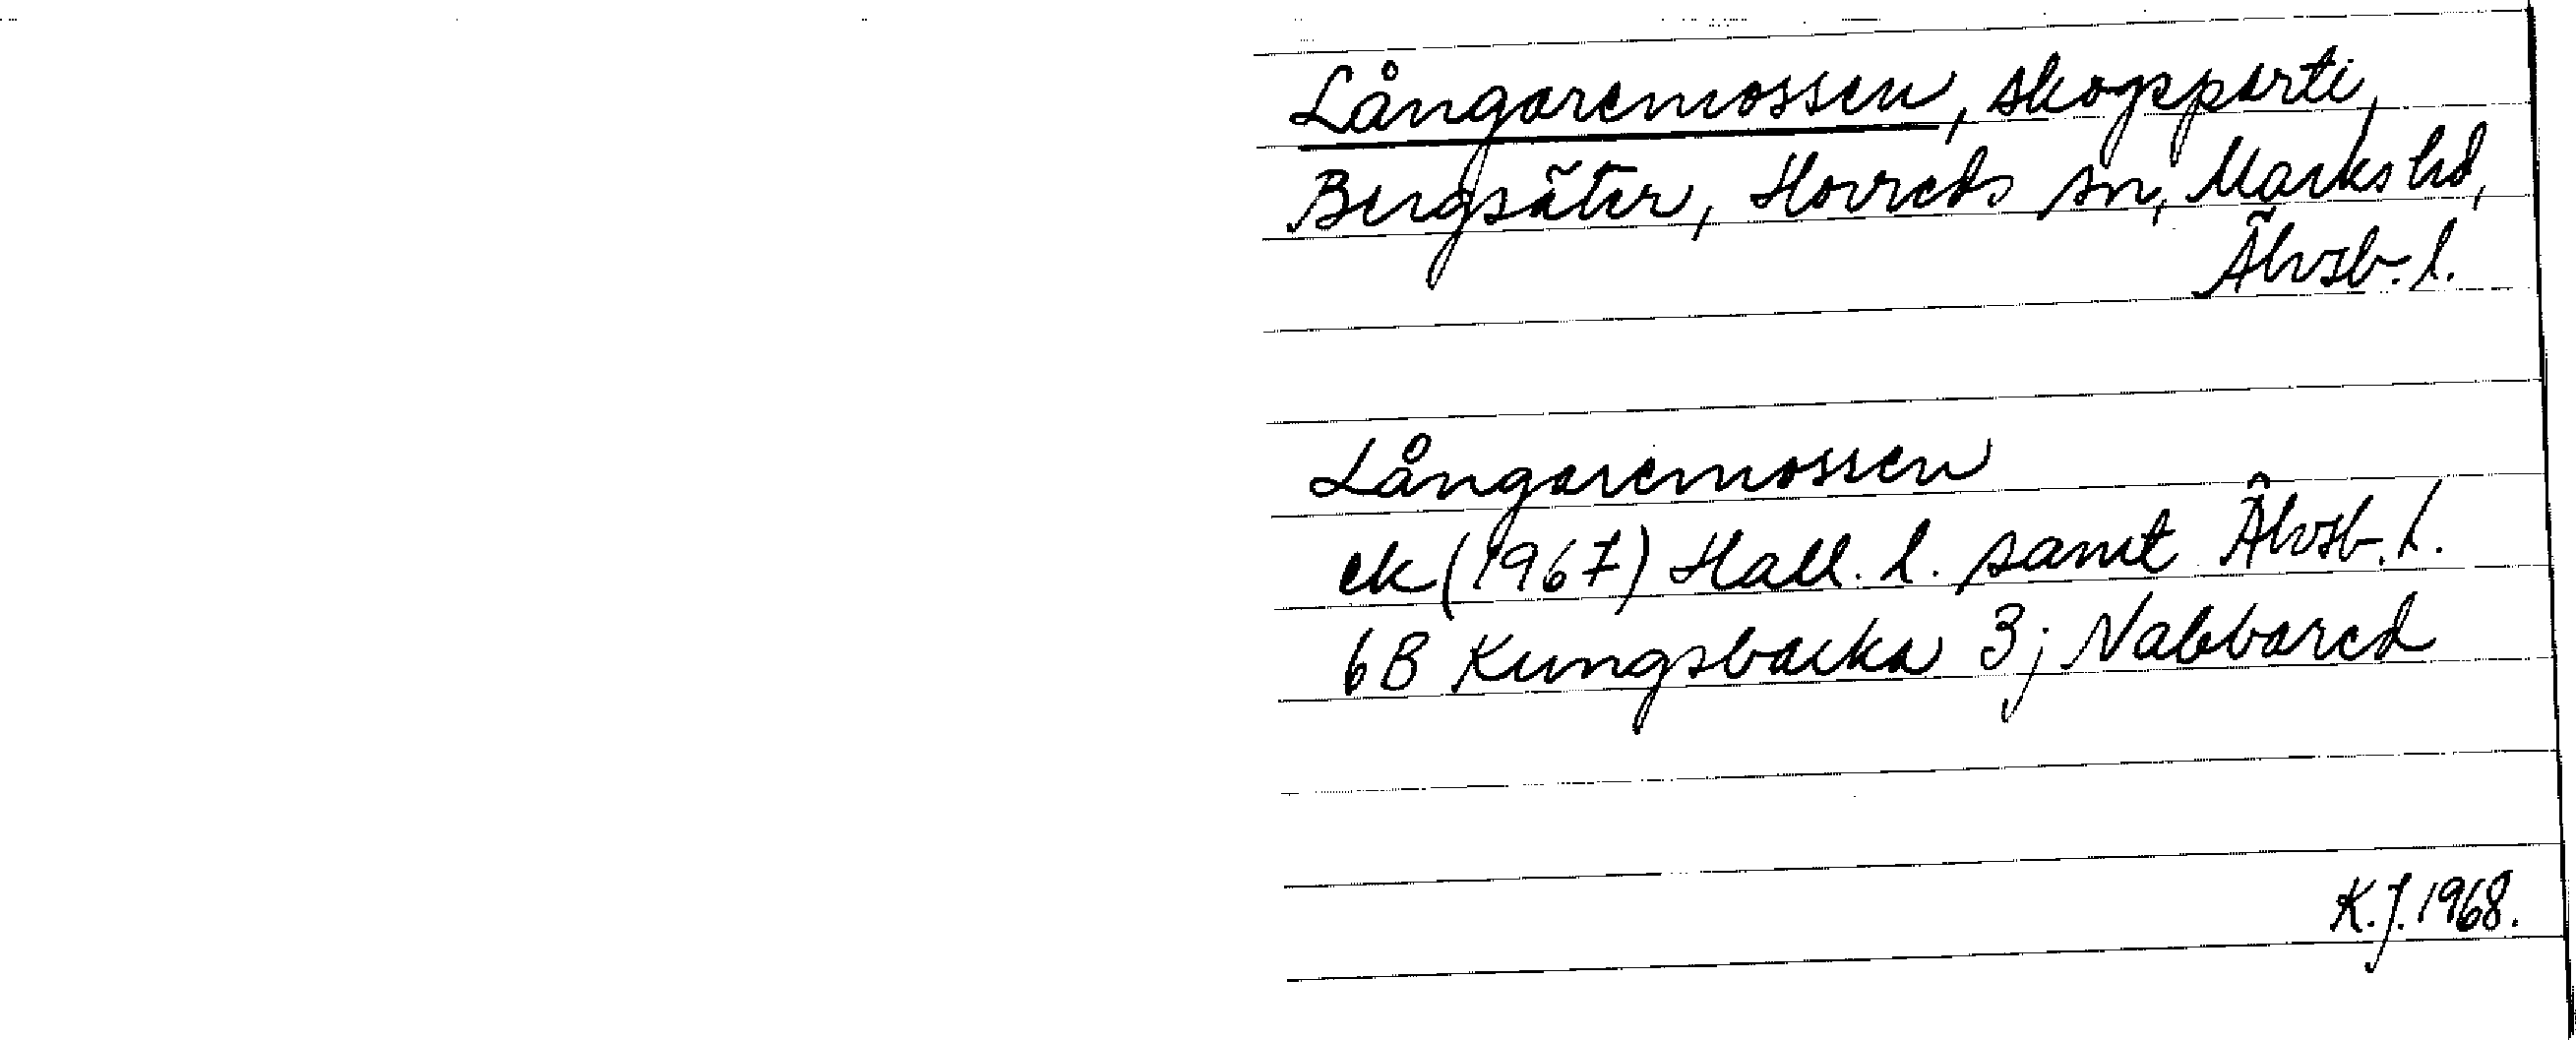 Långaremossen, skogsparti,
Bergsäter, Horreds sn, Marks hd,
Älvsb. l.
Långaremossen
ek (1967) Hall. l. samt Älvsb. l.
6B Kungsbacka 3j Nabbared
K.J. 1968.